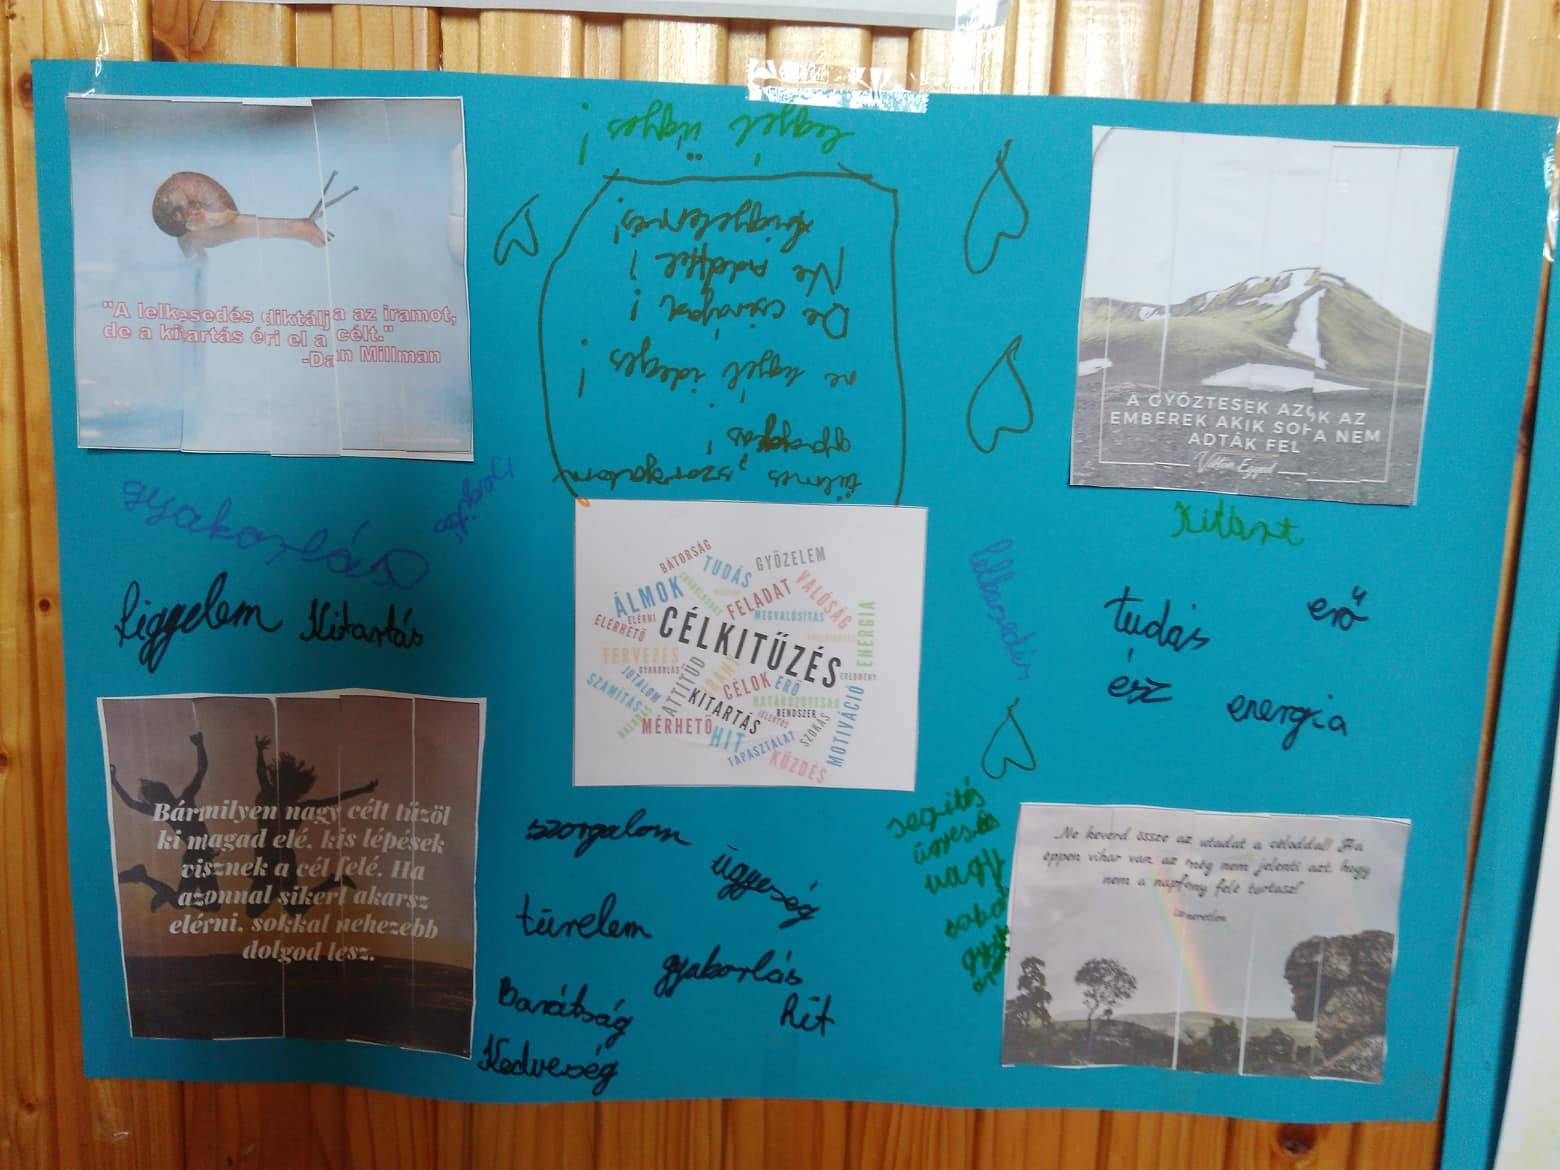 "A lelkesedés diktálja az iramot,
de a kitartás éri el a célt."
-Dan Millman
légyél ügyes!
türelmes, szorgalom
gyakorlás!
ne légyél ideges!
De csináljad!
Ne add fel!
A GYŐZTESEK AZOK AZ
EMBEREK AKIK SOHA NEM
ADTÁK FEL
gyakorlás
figyelem Kitartás
Kitart
lelkesedés
tudás
erő
ész
energia
BÁTORSÁG
TUDÁS
GYŐZELEM
ÁLMOK
FELADAT
VALÓSÁG
ELÉRNI
ELÉRHETŐ
MEGVALÓSÍTÁS
ENERGIA
CÉLKITŰZÉS
TERVEZÉS
GYAKORLÁS
JUTALOM
SZÁMÍTÁS
HALADÁS
ATTITŰD
CÉLOK
ERŐ
EREDMÉNY
KITARTÁS
HATÁROZOTTSÁG
RENDSZER
MÉRHETŐ
HIT
TAPASZTALAT
SZOKÁS
MOTIVÁCIÓ
KÜZDÉS
Bármilyen nagy célt tűzöl
ki magad elé, kis lépések
visznek a cél felé. Ha
azonnal sikert akarsz
elérni, sokkal nehezebb
dolgod lesz.
szorgalom
ügyeség
türelem
gyakorlás
Barátság
hit
Kedveség
segítés
nagy
„Ne keverd össze az utadat a céloddal! Ha
éppen vihar van, az még nem jelenti azt, hogy
nem a napfény felé tartasz!
ismeretlen